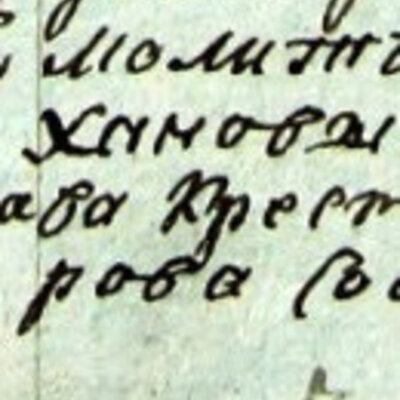 молит
хановы
ава Крест
рова Со